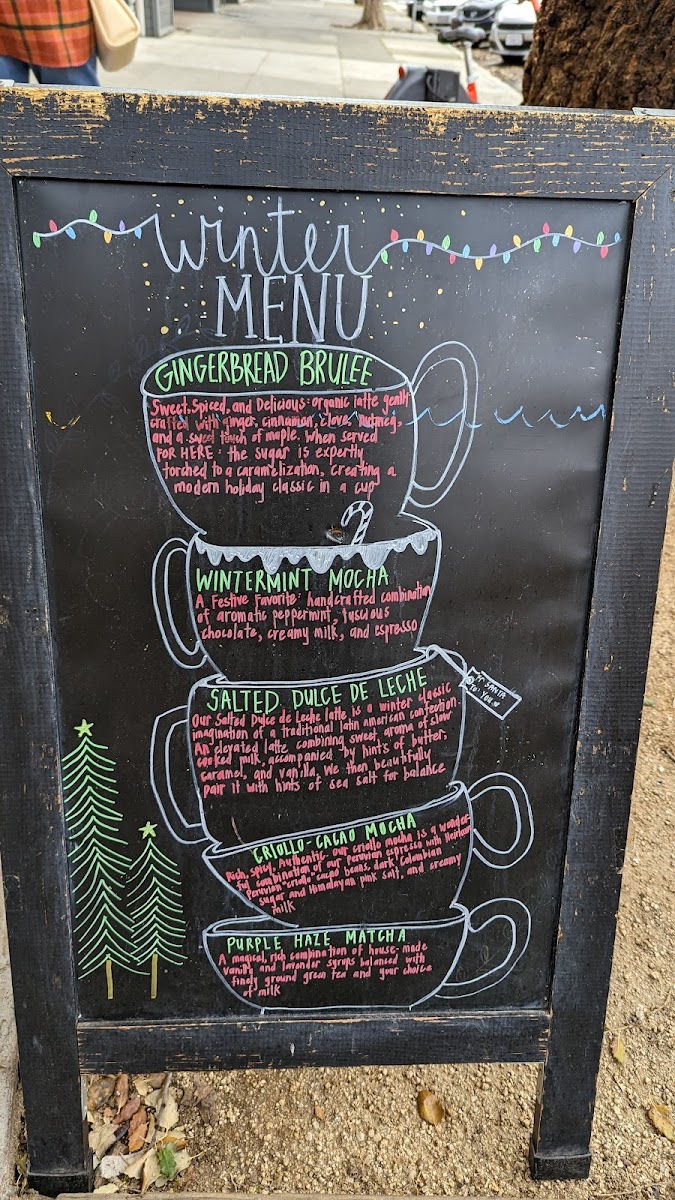 winter
MENU
GINGERBREAD BRULEE
Sweet, Spiced, and Delicious. organic latte gently
crafted with ginger, cinnamon, clove, nutmeg,
and a sweet touch of maple. When served
FOR HERE - the sugar is expertly
torched to a caramelization, creating a
modern holiday classic in a cup
WINTERMINT MOCHA
A Festive Favorite: handcrafted combination
of aromatic peppermint, luscious
chocolate, creamy milk, and espresso
SALTED DULCE DE LECHE
Our Salted Dulce de Leche latte is a winter classic
imagination of a traditional latin american confection.
An elevated latte combining sweet aroma of slow
cooked milk, accompanied by hints of butter,
caramel, and vanilla. We then beautifully
pair it with hints of sea salt for balance
SANTA
TO: YOU
CRIOLLO-CACAO MOCHA
Rich, spicy, Authentic - our criollo mocha is a wonder-
ful combination of our Peruvian espresso with Heirloom
Peruvian "criollo" cacao beans, dark Colombian
sugar and Himalayan pink salt, and creamy
milk
PURPLE HAZE MATCHA
A magical, rich combination of house-made
vanilla and lavender syrups balanced with
finely ground green tea and your choice
of milk